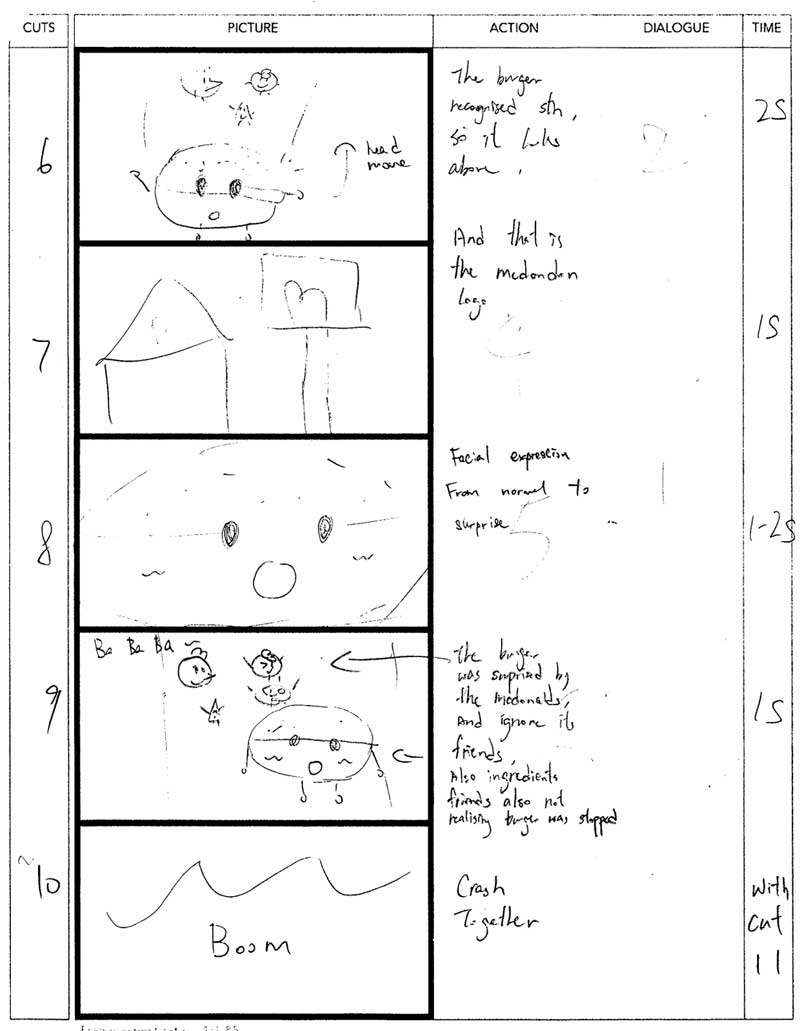 CUTS PICTURE ACTION DIALOGUE TIME
6
head
move
The burger
recognised sth,
so it looks
above.
2S
7
m
And that is
the mcdondon
logo
1S
8
Facial expression
From normal to
surprise
1-2S
9
Ba Ba Ba ~
the burger
was surprised by
the mcdonalds,
And ignore its
friends,
Also ingredients
friends also not
realising burger was stopped
1S
~10
Boom
Crash
Together
with
cut
11